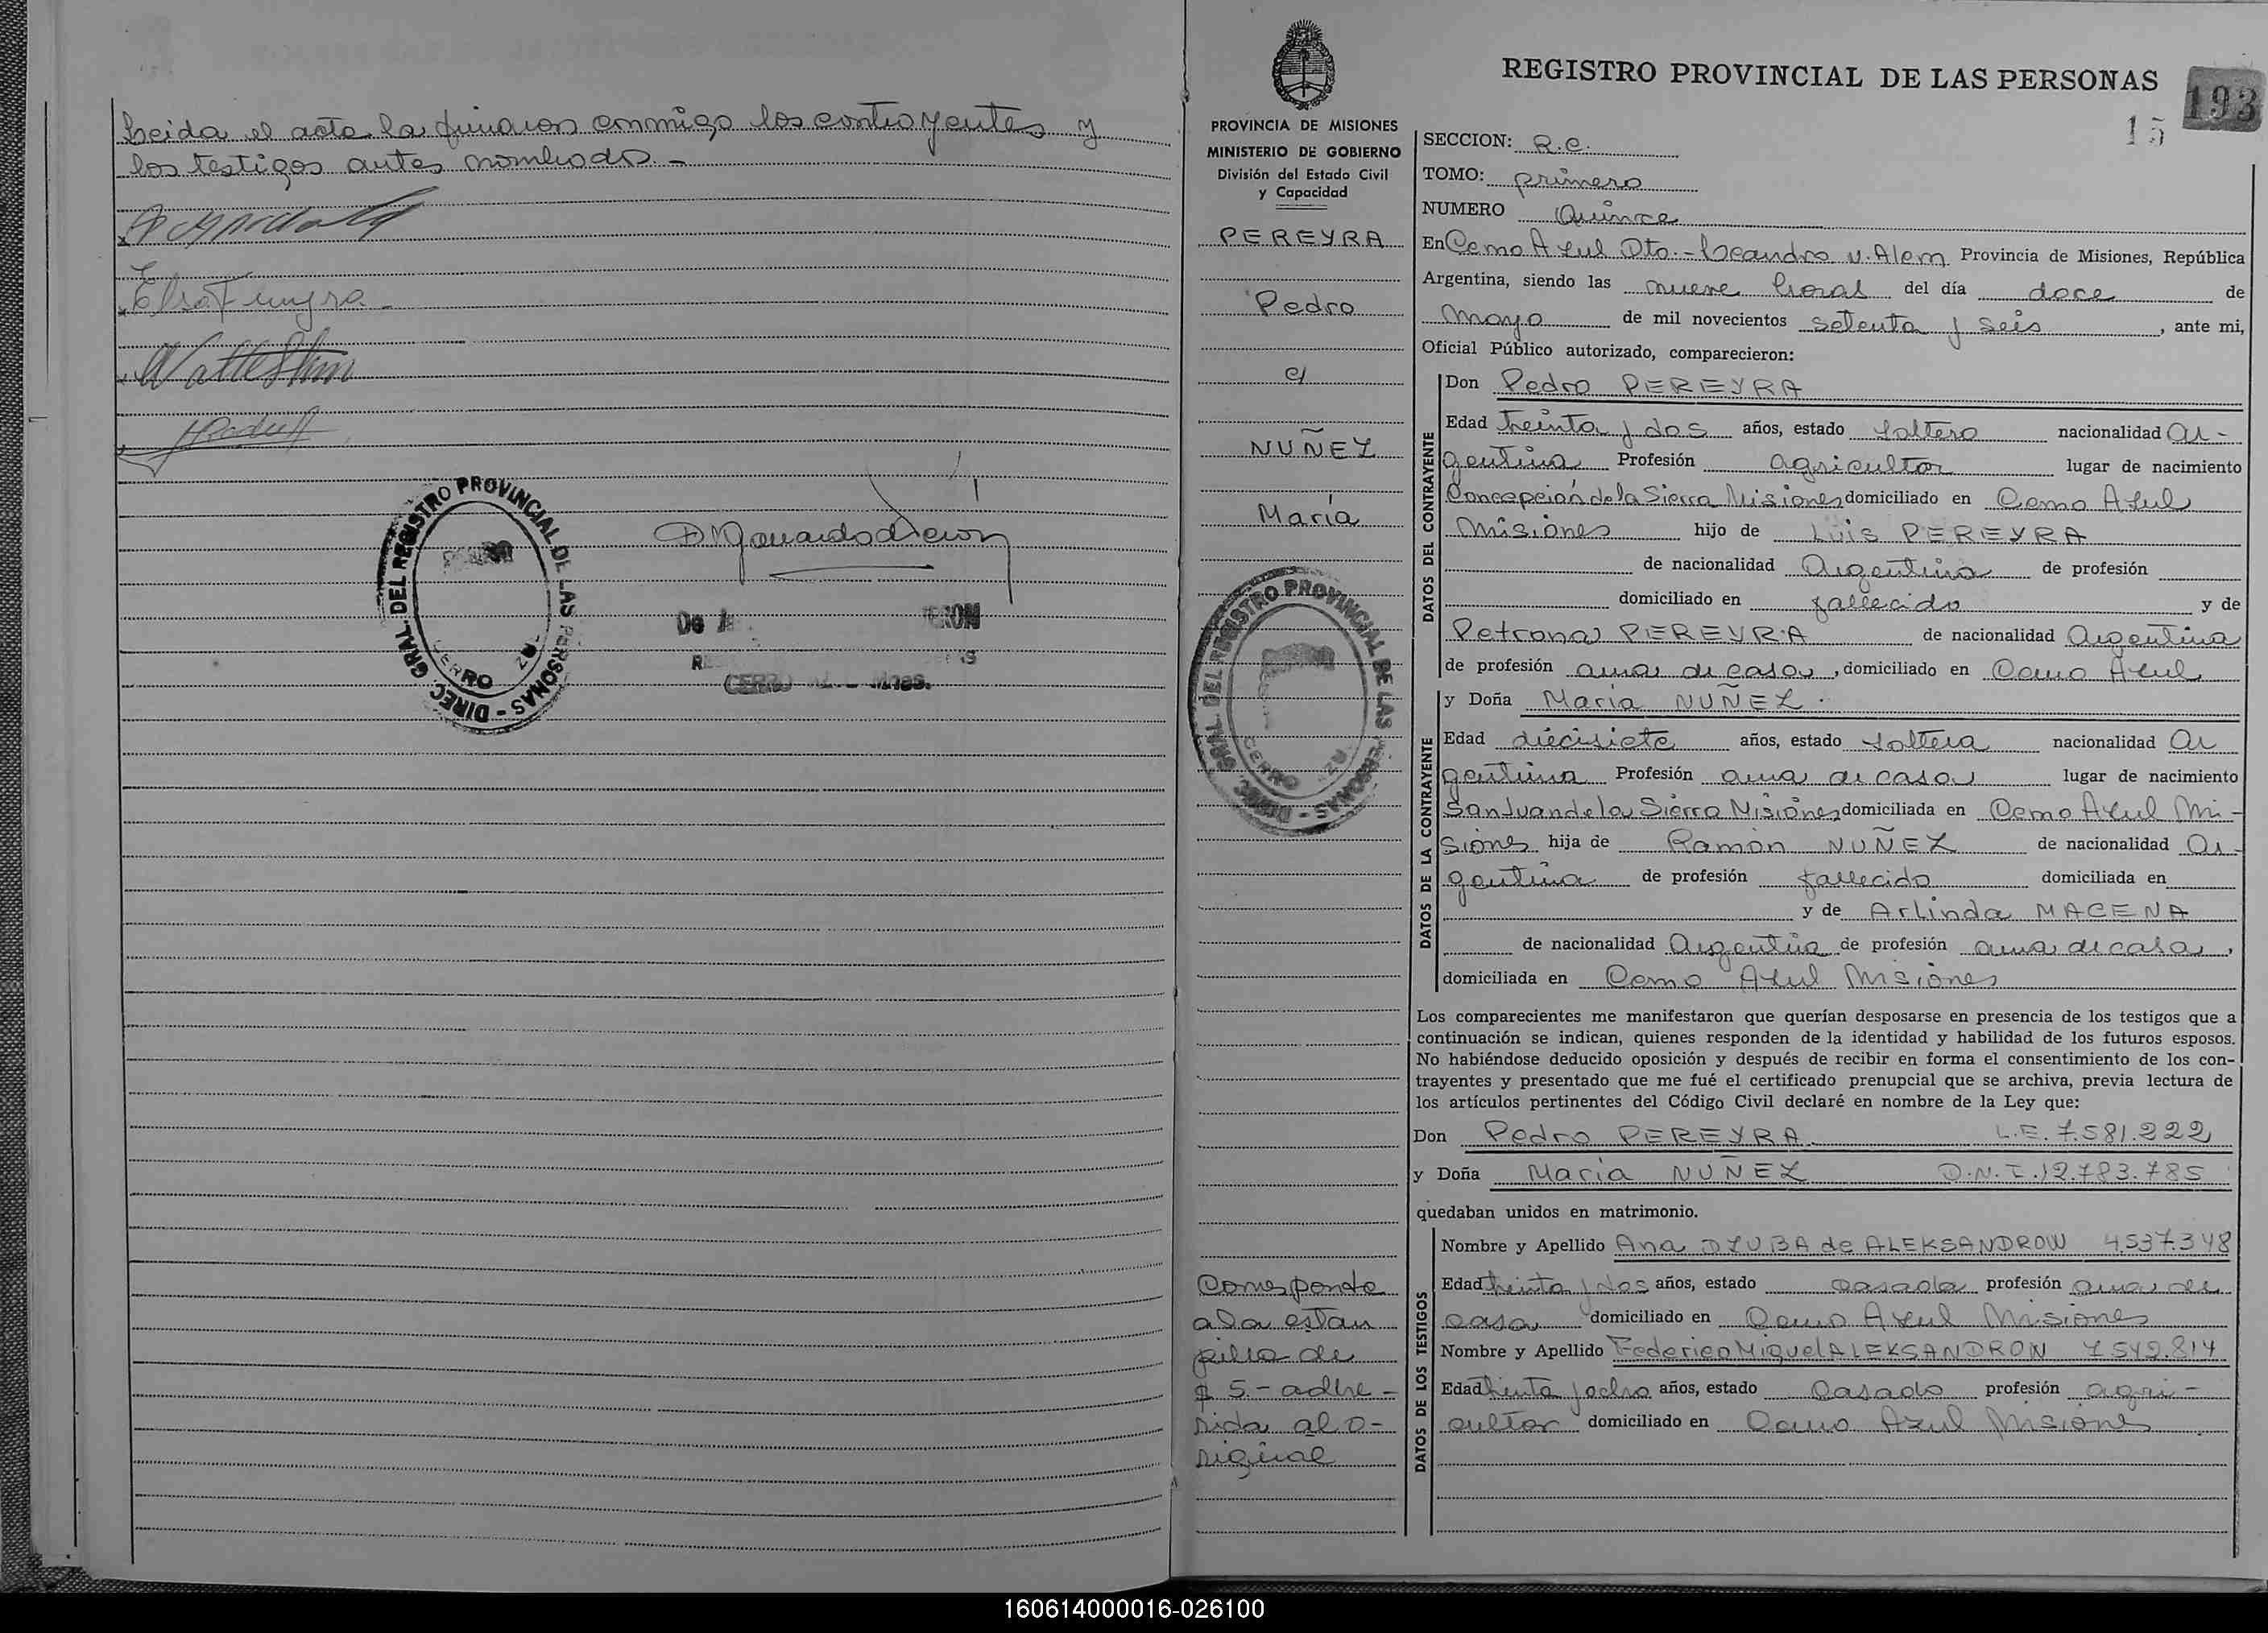 Leida el acta la firmaron conmigo los contrayentes y
los testigos antes nombrados.-
DIREC. GRAL. DEL REGISTRO PROVINCIAL DE LAS PERSONAS
CERRO AZ
CERRO AZ L Mnes.
REGISTRO PROVINCIAL DE LAS PERSONAS
193
15
PROVINCIA DE MISIONES
MINISTERIO DE GOBIERNO
División del Estado Civil
y Capacidad
PEREYRA
Pedro
c/
NUÑEZ
María
DIREC. GRAL. DEL REGISTRO PROVINCIAL DE LAS PERSONAS
CERRO AZ
Corresponde
a la estam
pilla de
$ 5.- adhe-
rida al o-
riginal
SECCION: R.C.
TOMO: primero
NUMERO Quince
En Cerro Azul Dto.- Leandro N. Alem Provincia de Misiones, República
Argentina, siendo las nueve horas del día doce de
mayo de mil novecientos setenta y seis, ante mi,
Oficial Público autorizado, comparecieron:
DATOS DEL CONTRAYENTE
Don Pedro PEREYRA
Edad treinta y dos años, estado soltero nacionalidad ar-
gentina Profesión agricultor lugar de nacimiento
Concepción de la Sierra Misiones domiciliado en Cerro Azul
Misiones hijo de Luis PEREYRA
de nacionalidad Argentina de profesión
domiciliado en fallecido y de
Petrona PEREYRA de nacionalidad Argentina
de profesión ama de casa, domiciliado en Cerro Azul
DATOS DE LA CONTRAYENTE
y Doña María NUÑEZ.
Edad diecisiete años, estado soltera nacionalidad ar
gentina Profesión ama de casa lugar de nacimiento
San Juan de la Sierra Misiones domiciliada en Cerro Azul Mi-
siones hija de Ramón NUÑEZ de nacionalidad Ar-
gentina de profesión fallecido domiciliada en
y de Arlinda MACENA
de nacionalidad Argentina de profesión ama de casa,
domiciliada en Cerro Azul Misiones
Los comparecientes me manifestaron que querían desposarse en presencia de los testigos que a
continuación se indican, quienes responden de la identidad y habilidad de los futuros esposos.
No habiéndose deducido oposición y después de recibir en forma el consentimiento de los con-
trayentes y presentado que me fué el certificado prenupcial que se archiva, previa lectura de
los artículos pertinentes del Código Civil declaré en nombre de la Ley que:
Don Pedro PEREYRA L.E. 7.581.222
y Doña María NUÑEZ D.N.I. 12.783.785
quedaban unidos en matrimonio.
DATOS DE LOS TESTIGOS
Nombre y Apellido Ana DZUBA de ALEKSANDROW 4.537.348
Edad treinta y dos años, estado casada profesión ama de
casa domiciliado en Cerro Azul Misiones
Nombre y Apellido Federico Miguel ALEKSANDRON 7.542.814
Edad treinta y ocho años, estado Casado profesión agri-
cultor domiciliado en Cerro Azul Misiones
160614000016-026100